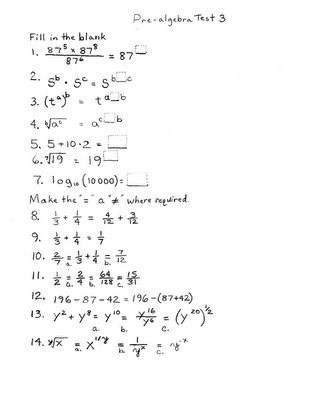 Pre-algebra Test 3
Fill in the blank
1. 87⁵ × 87⁸ / 87⁶ = 87□
2. Sᵇ · Sᶜ = S^b□c
3. (tᵃ)ᵇ = t^a□b
4. ᵇ√aᶜ = a^c□b
5. 5+10·2 = □
6. ⁷√19 = 19□
7. log₁₀(10000) = □
Make the "=" a "≠" where required.
8. 1/3 + 1/4 = 4/12 + 3/12
9. 1/3 + 1/4 = 1/7
10. 2/7 =a. 1/3 + 1/4 =b. 7/12
11. 1/2 =a. 2/4 =b. 64/128 =c. 15/31
12. 196-87-42 = 196-(87+42)
13. y² + y⁸ =a. y¹⁰ =b. y¹⁶/y⁶ =c. (y²⁰)^1/2
14. ʸ√x =a. x^1/y =b. 1/yˣ =c. y⁻ˣ